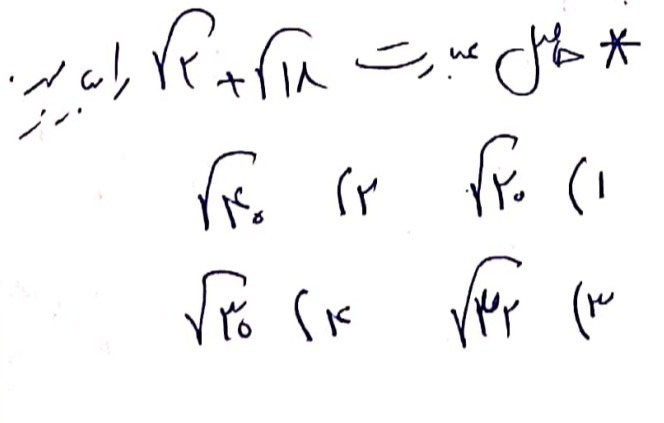 * حاصل عبارت √۲ + √۱۸ را بیابید.
۱) √۲۰ ۲) √۴۰
۳) √۳۲ ۴) √۳۰